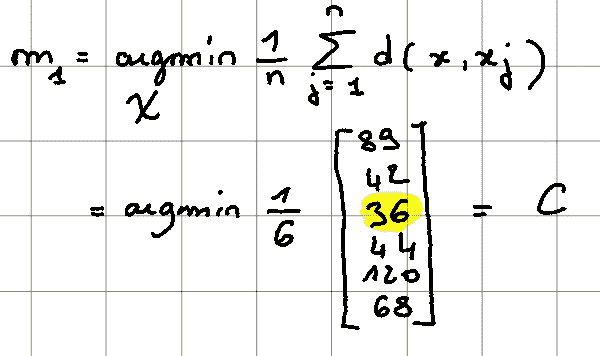 m₁ = argmin 1/n Σ d(x, xⱼ)
n
j=1
χ
= argmin 1/6 [89
42
36
44
120
68] = C